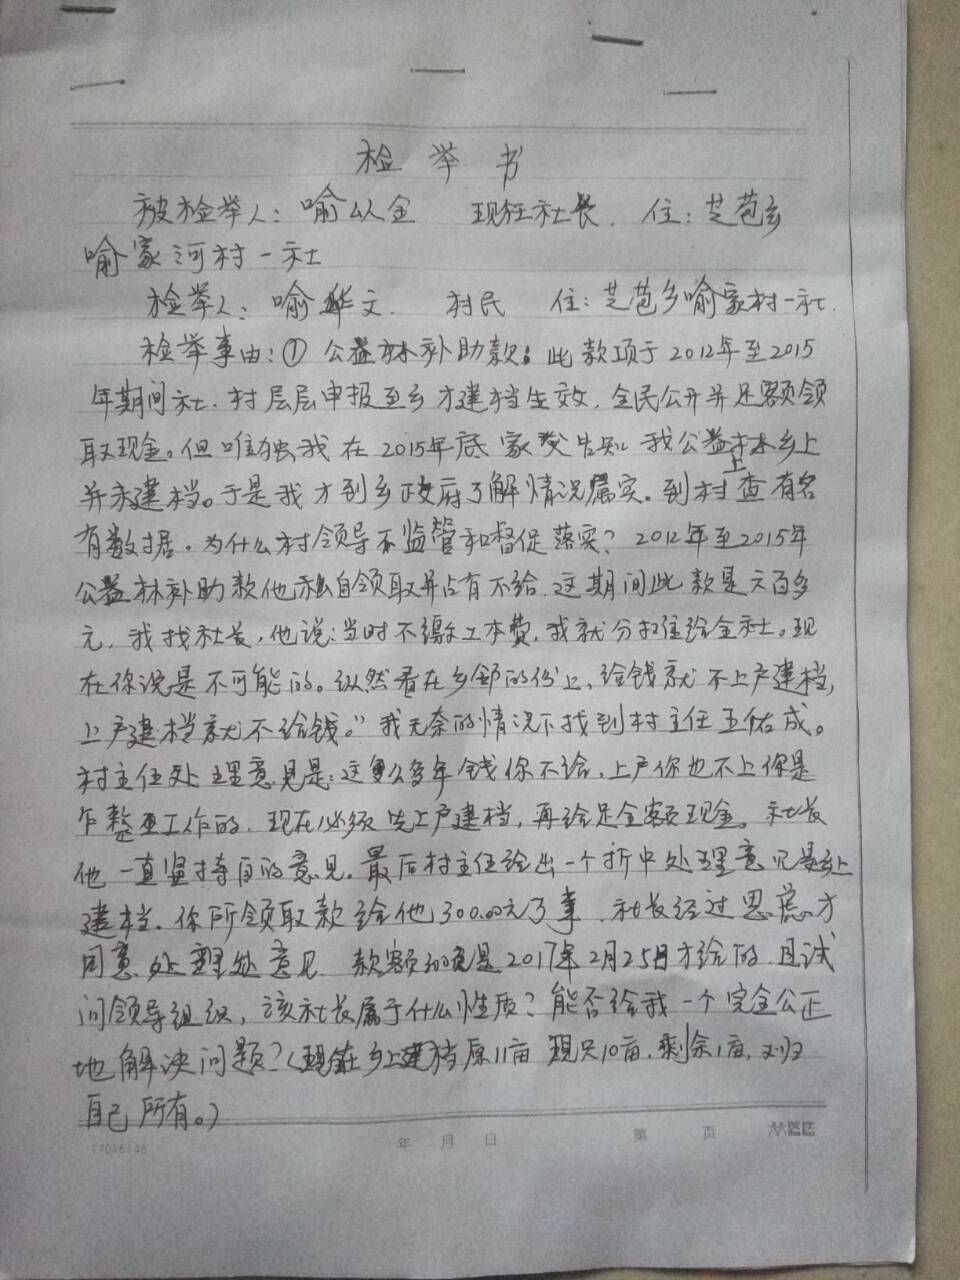 检举书
被检举人：喻以全 现任社长. 住：芝苞乡
喻家河村一社
检举人：喻华文. 村民 住：芝苞乡喻家村一社.
检举事由：① 公益林补助款：此款项于2012年至2015
年期间社、村层层申报至乡才建档生效，全民公开并足额领
取现金。但唯独我在2015年底家父告知我公益林乡上
并未建档。于是我才到乡政府了解情况属实．到村上查有名
有数据．为什么村领导不监管和督促落实？2012年至2015年
公益林补助款他私自领取并占有不给．这期间此款是六百多
元．我找社长，他说：当时不缴工本费，我就分摊给全社。现
在你说是不可能的。纵然看在乡邻的份上、给钱就不上户建档，
上户建档就不给钱。”我无奈的情况下找到村主任王佑成。
村主任处理意见是：这么多年钱你不给、上户你也不上你是
乍整工作的．现在必须先上户建档，再给足全额现金。社长
他一直坚持自的意见．最后村主任给出一个折中处理意见是乡上
建档．你所领取款给他300.00元了事．社长经过思虑才
同意处理处意见 款额的兑是2017年2月25日才给的．且试
问领导组织，该社长属于什么性质？能否给我一个完全公正
地解决问题？（现在乡上建档原11亩 现只10亩．剩余1亩，又归
自己所有。）
17016146 年 月 日 第 页